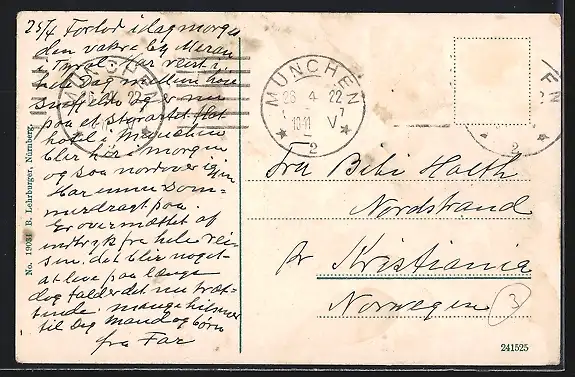 25/4 Forlod idag morges
den vakre by Meran
Tyrol. Har reist i
hele Dag mellem høie
snefjelde og er nu
paa et storartet
hotel i München
blir her i morgen
og saa nordover igjen
Har ennu som-
merdragt paa.
Er overmættet af
indtryk fra hele rei-
sen. det blir noget
at leve paa længe
dog falder det nu træt-
tende. mange hilsener
til Dig Mand og børn
fra Far
No. 19031 B. Lehrburger, Nürnberg.
MÜNCHEN
26 4 22
10-11 V 7
2
Fru Bibi Holth
Nordstrand
pr Kristiania
Norwegen
3
241525